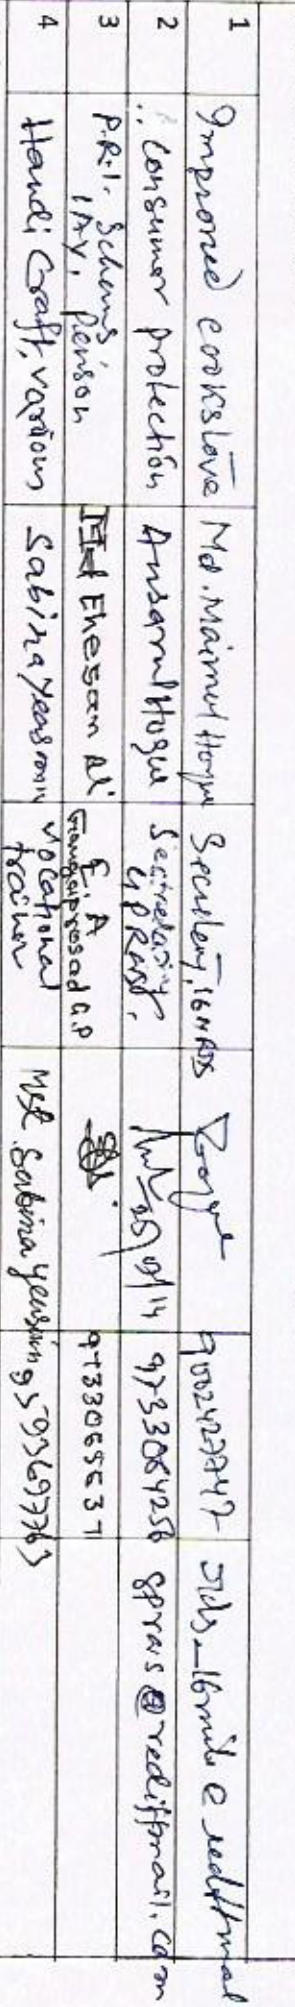 1 Improved cookstove Md. Maimul Hoque Secretary, 16 M RDS 9002427747
2 Consumer protection Ansarul Hoque Secretary 25/01/14 9733064256 gprais@rediffmail.com
3 P.R.I. Schems IAY, Penson Ehesan Ali E. A Gangaprosad G.P 9733065637
4 Handi Craft, various Sabina Yeasmin vocational trainer Mst. Sabina Yeasmin 9593697763